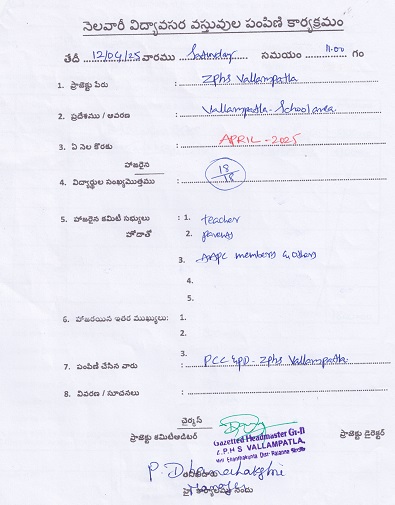 నెలవారీ విద్యావసర వస్తువుల పంపిణి కార్యక్రమం
తేదీ 12/04/25 వారము Saturday సమయం 11.00 గం
1. ప్రాజెక్టు పేరు : ZPHS Vallampatla
2. ప్రదేశము / ఆవరణ : Vallampatla - School area
3. ఏ నెల కొరకు : APRIL - 2025
హాజరైన 18
4. విద్యార్థుల సంఖ్యమొత్తము : 18
5. హాజరైన కమిటి సభ్యులు : 1. teacher
హోదాతో 2. parents
3. AAPC members & others
4.
5.
6. హాజరయిన ఇతర ముఖ్యులు: 1.
2.
3.
7. పంపిణి చేసిన వారు : PCC & PD - ZPHS Vallampatla.
8. వివరణ / సూచనలు :
చైర్మన్
Gazetted Headmaster Gr-II
ప్రాజెక్టు కమిటి Z.P.H.S VALLAMPATLA, ప్రాజెక్టు డైరెక్టర్
Dist- Rajanna